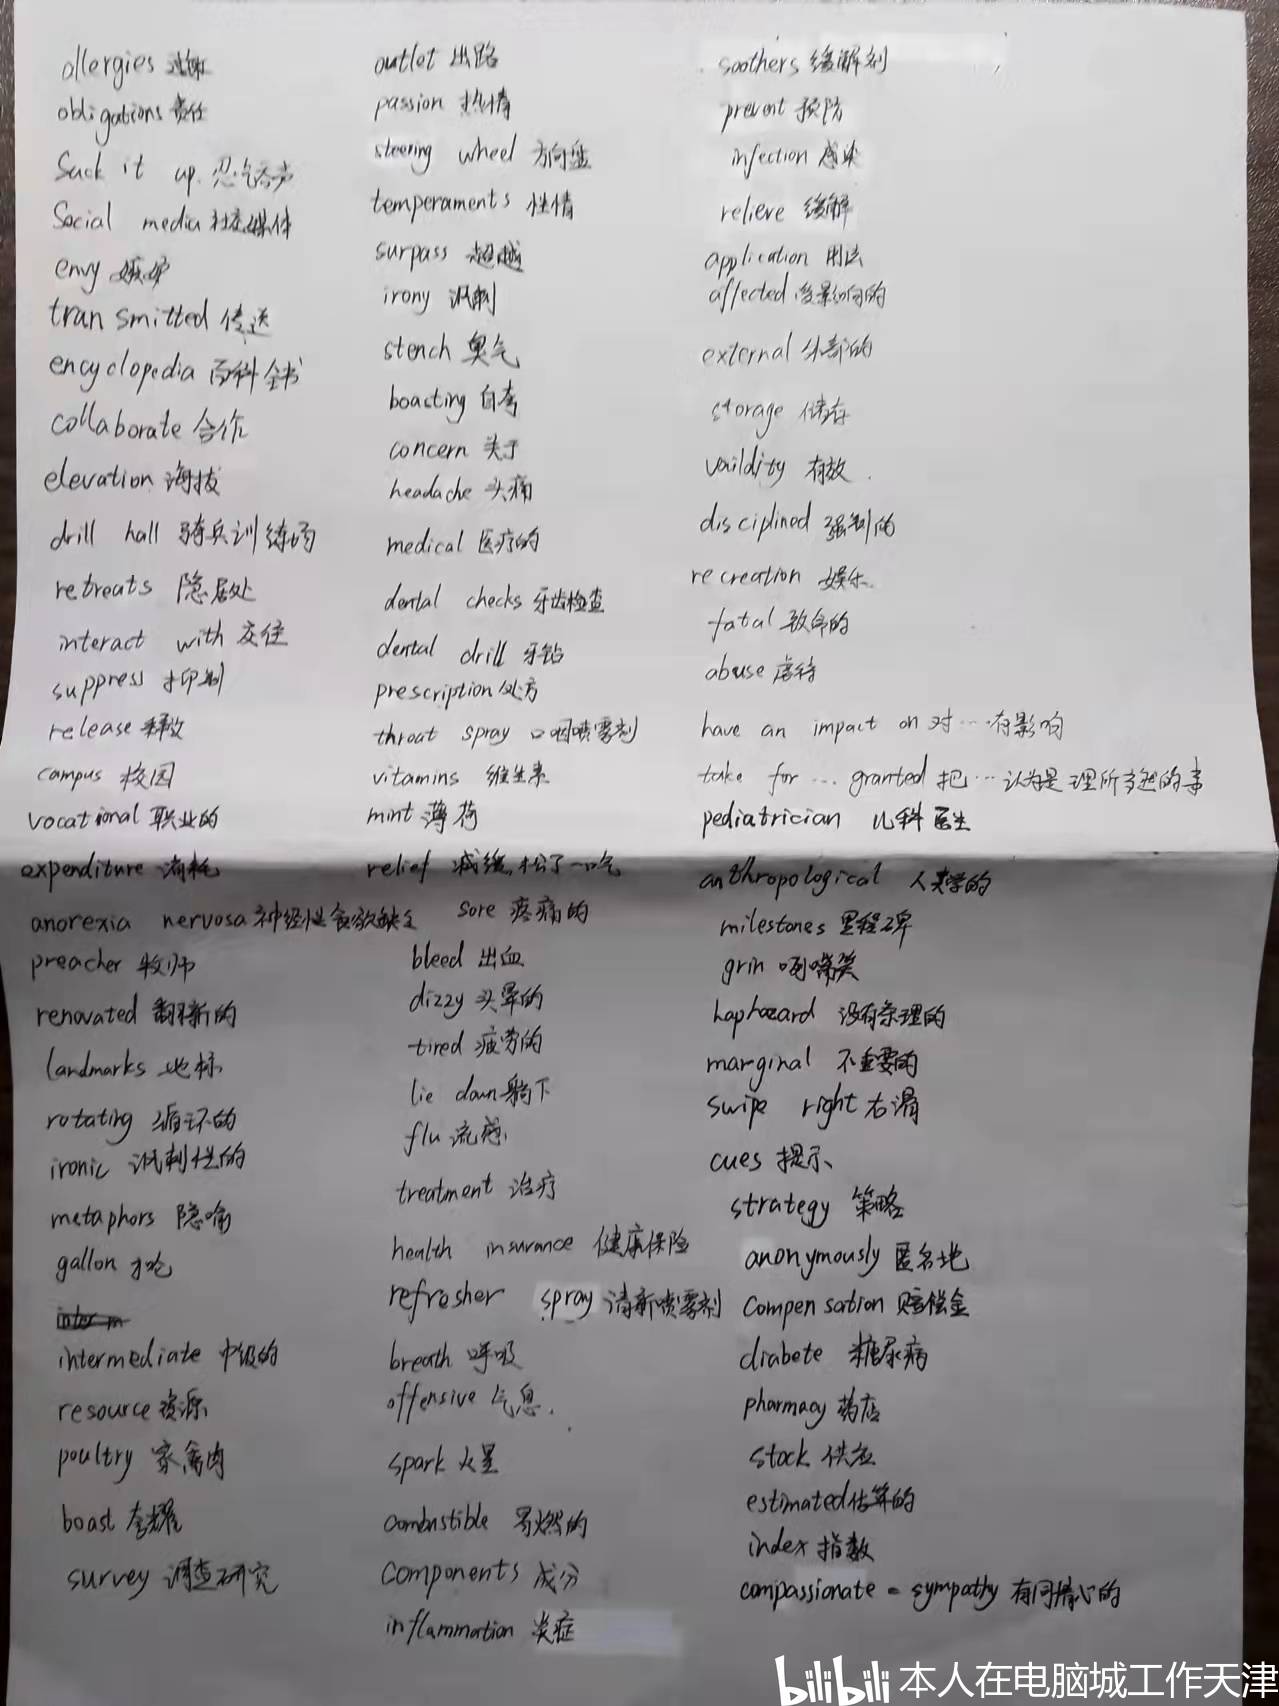 allergies 过敏
obligations 责任
Suck it up. 忍气吞声
Social media 社交媒体
envy 嫉妒
transmitted 传送
encyclopedia 百科全书
collaborate 合作
elevation 海拔
drill hall 骑兵训练场
retreats 隐居处
interact with 交往
suppress 抑制
release 释放
campus 校园
vocational 职业的
expenditure 消耗
anorexia nervosa 神经性食欲缺乏
preacher 牧师
renovated 翻新的
landmarks 地标
rotating 循环的
ironic 讽刺性的
metaphors 隐喻
gallon 加仑
inter m
intermediate 中级的
resource 资源
poultry 家禽肉
boast 夸耀
survey 调查研究
outlet 出路
passion 热情
steering wheel 方向盘
temperaments 性情
surpass 超越
irony 讽刺
stench 臭气
boasting 自夸
concern 关于
headache 头痛
medical 医疗的
dental checks 牙齿检查
dental drill 牙钻
prescription 处方
throat spray 口咽喷雾剂
vitamins 维生素
mint 薄荷
relief 减缓,松了一口气
sore 疼痛的
bleed 出血
dizzy 头晕的
tired 疲劳的
lie down 躺下
flu 流感
treatment 治疗
health insurance 健康保险
refresher spray 清新喷雾剂
breath 呼吸
offensive 气息.
spark 火星
combustible 易燃的
components 成分
inflammation 炎症
soothers 缓解剂
prevent 预防
infection 感染
relieve 缓解
application 用法
affected 受影响的
external 外部的
storage 储存
vaildity 有效
disciplined 强制的
recreation 娱乐
fatal 致命的
abuse 虐待
have an impact on 对…有影响
take for … granted 把…认为是理所当然的事
pediatrician 儿科医生
anthropological 人类学的
milestones 里程碑
grin 咧嘴笑
haphazard 没有条理的
marginal 不重要的
swipe right 右滑
cues 提示
strategy 策略
anonymously 匿名地
compensation 赔偿金
diabete 糖尿病
pharmacy 药店
stock 供应
estimated 估算的
index 指数
compassionate = sympathy 有同情心的
bilibili 本人在电脑城工作天津